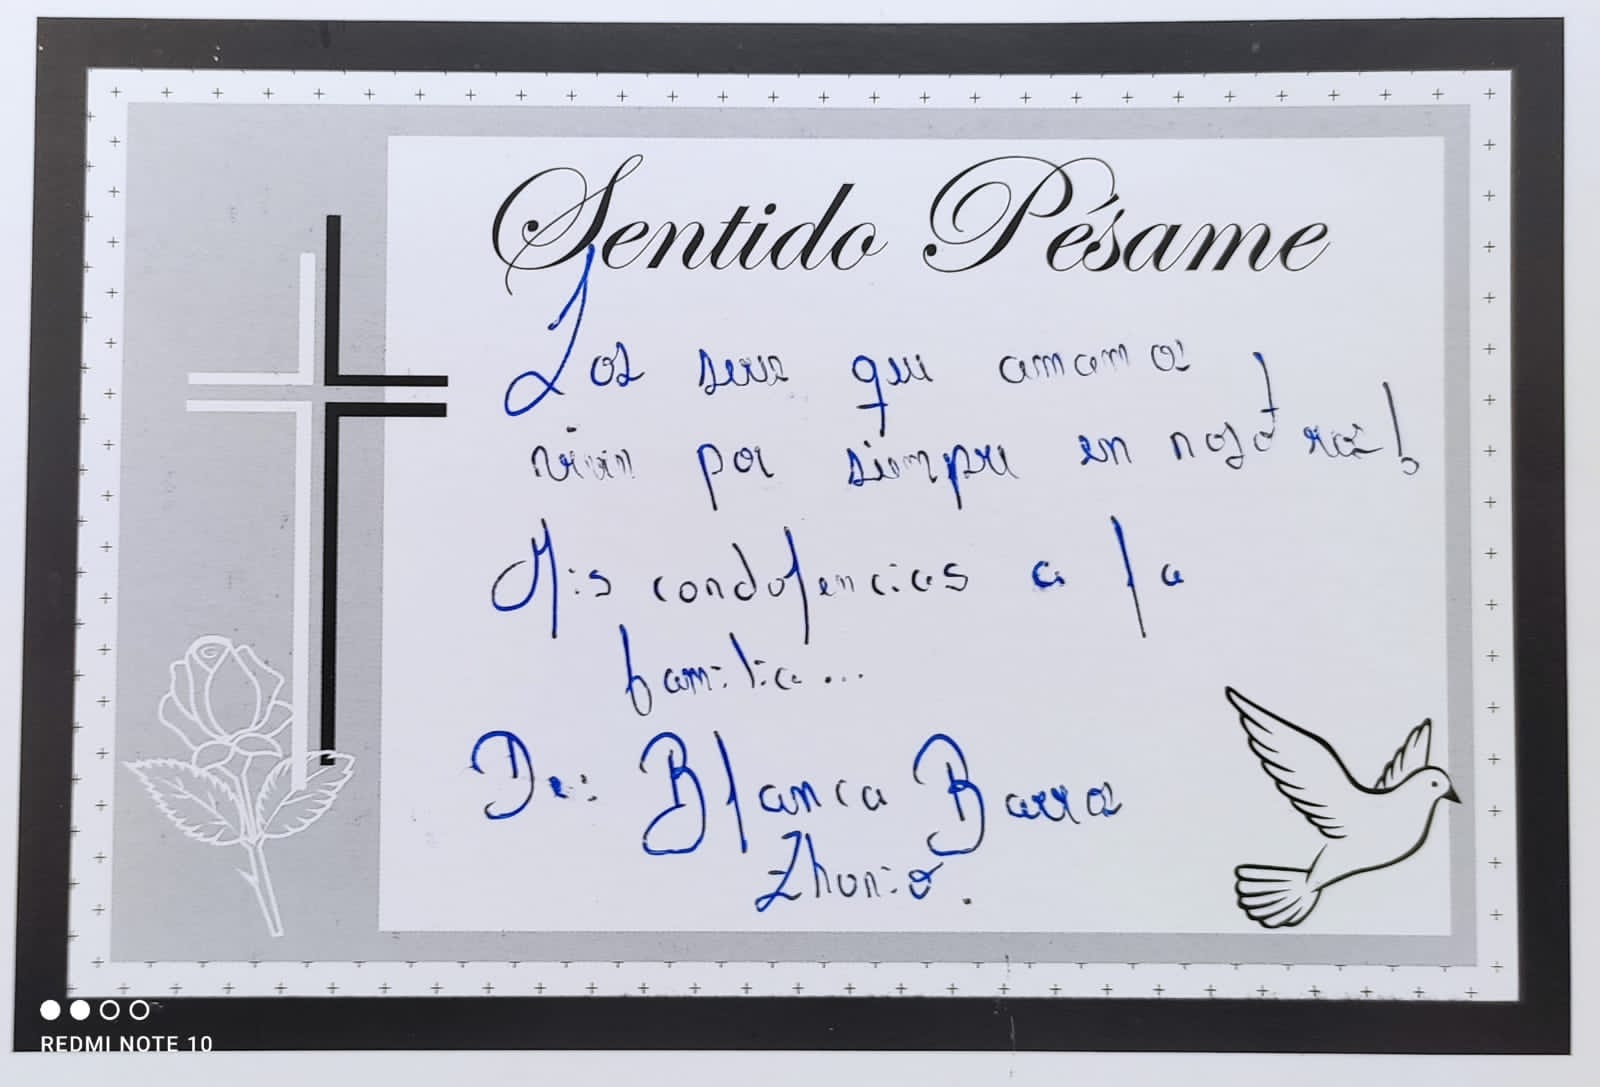 Sentido Pésame
Los seres que amamos
viven por siempre en nosotros!
Mis condolencias a la
familia...
De: Blanca Barros
Zhunio.
REDMI NOTE 10